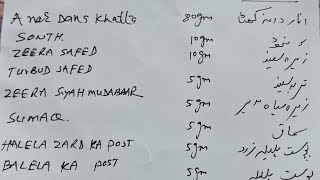 Anar Dana Khatta 80gm انار دانہ کھٹا
SONTH 10gm سونٹھ
ZEERA SAFED 10gm زیرہ سفید
TURBUD SAFED 5gm تربد سفید
ZEERA SIYAH MUDABAR 5gm زیرہ سیاہ مدبر
SUMAQ 5gm سماق
HALELA ZARD KA POST 5gm پوست ہلیلہ زرد
BALELA KA POST 5gm پوست بلیلہ